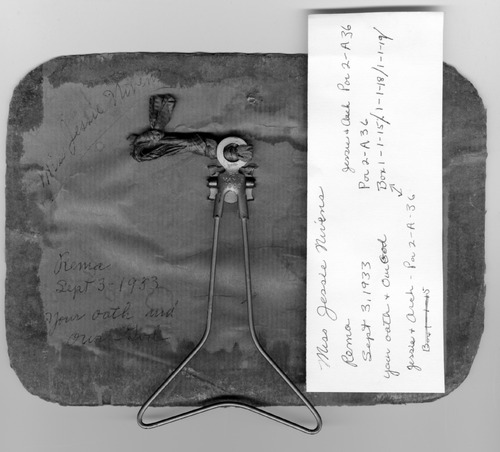 Miss Jessie Nivens
Rema
Sept 3-1933
Your oath and
our
Miss Jessie Nivens
Rema
Sept 3, 1933
Your oath & Our God
Jessie & Arch - Por 2-A-36
Box 1-15
Jessie & Arch Por 2-A36
Por 2-A36
Box 1-1-15/1-1-18/1-1-19/